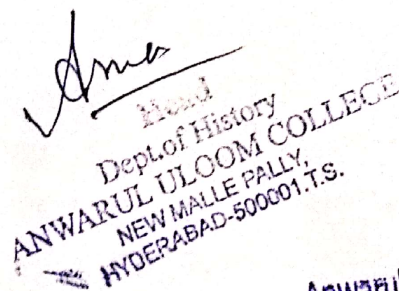 Head
Dept.of History
ANWARUL ULOOM COLLEGE
NEW MALLE PALLY,
HYDERABAD-500001.T.S.
Anwarul